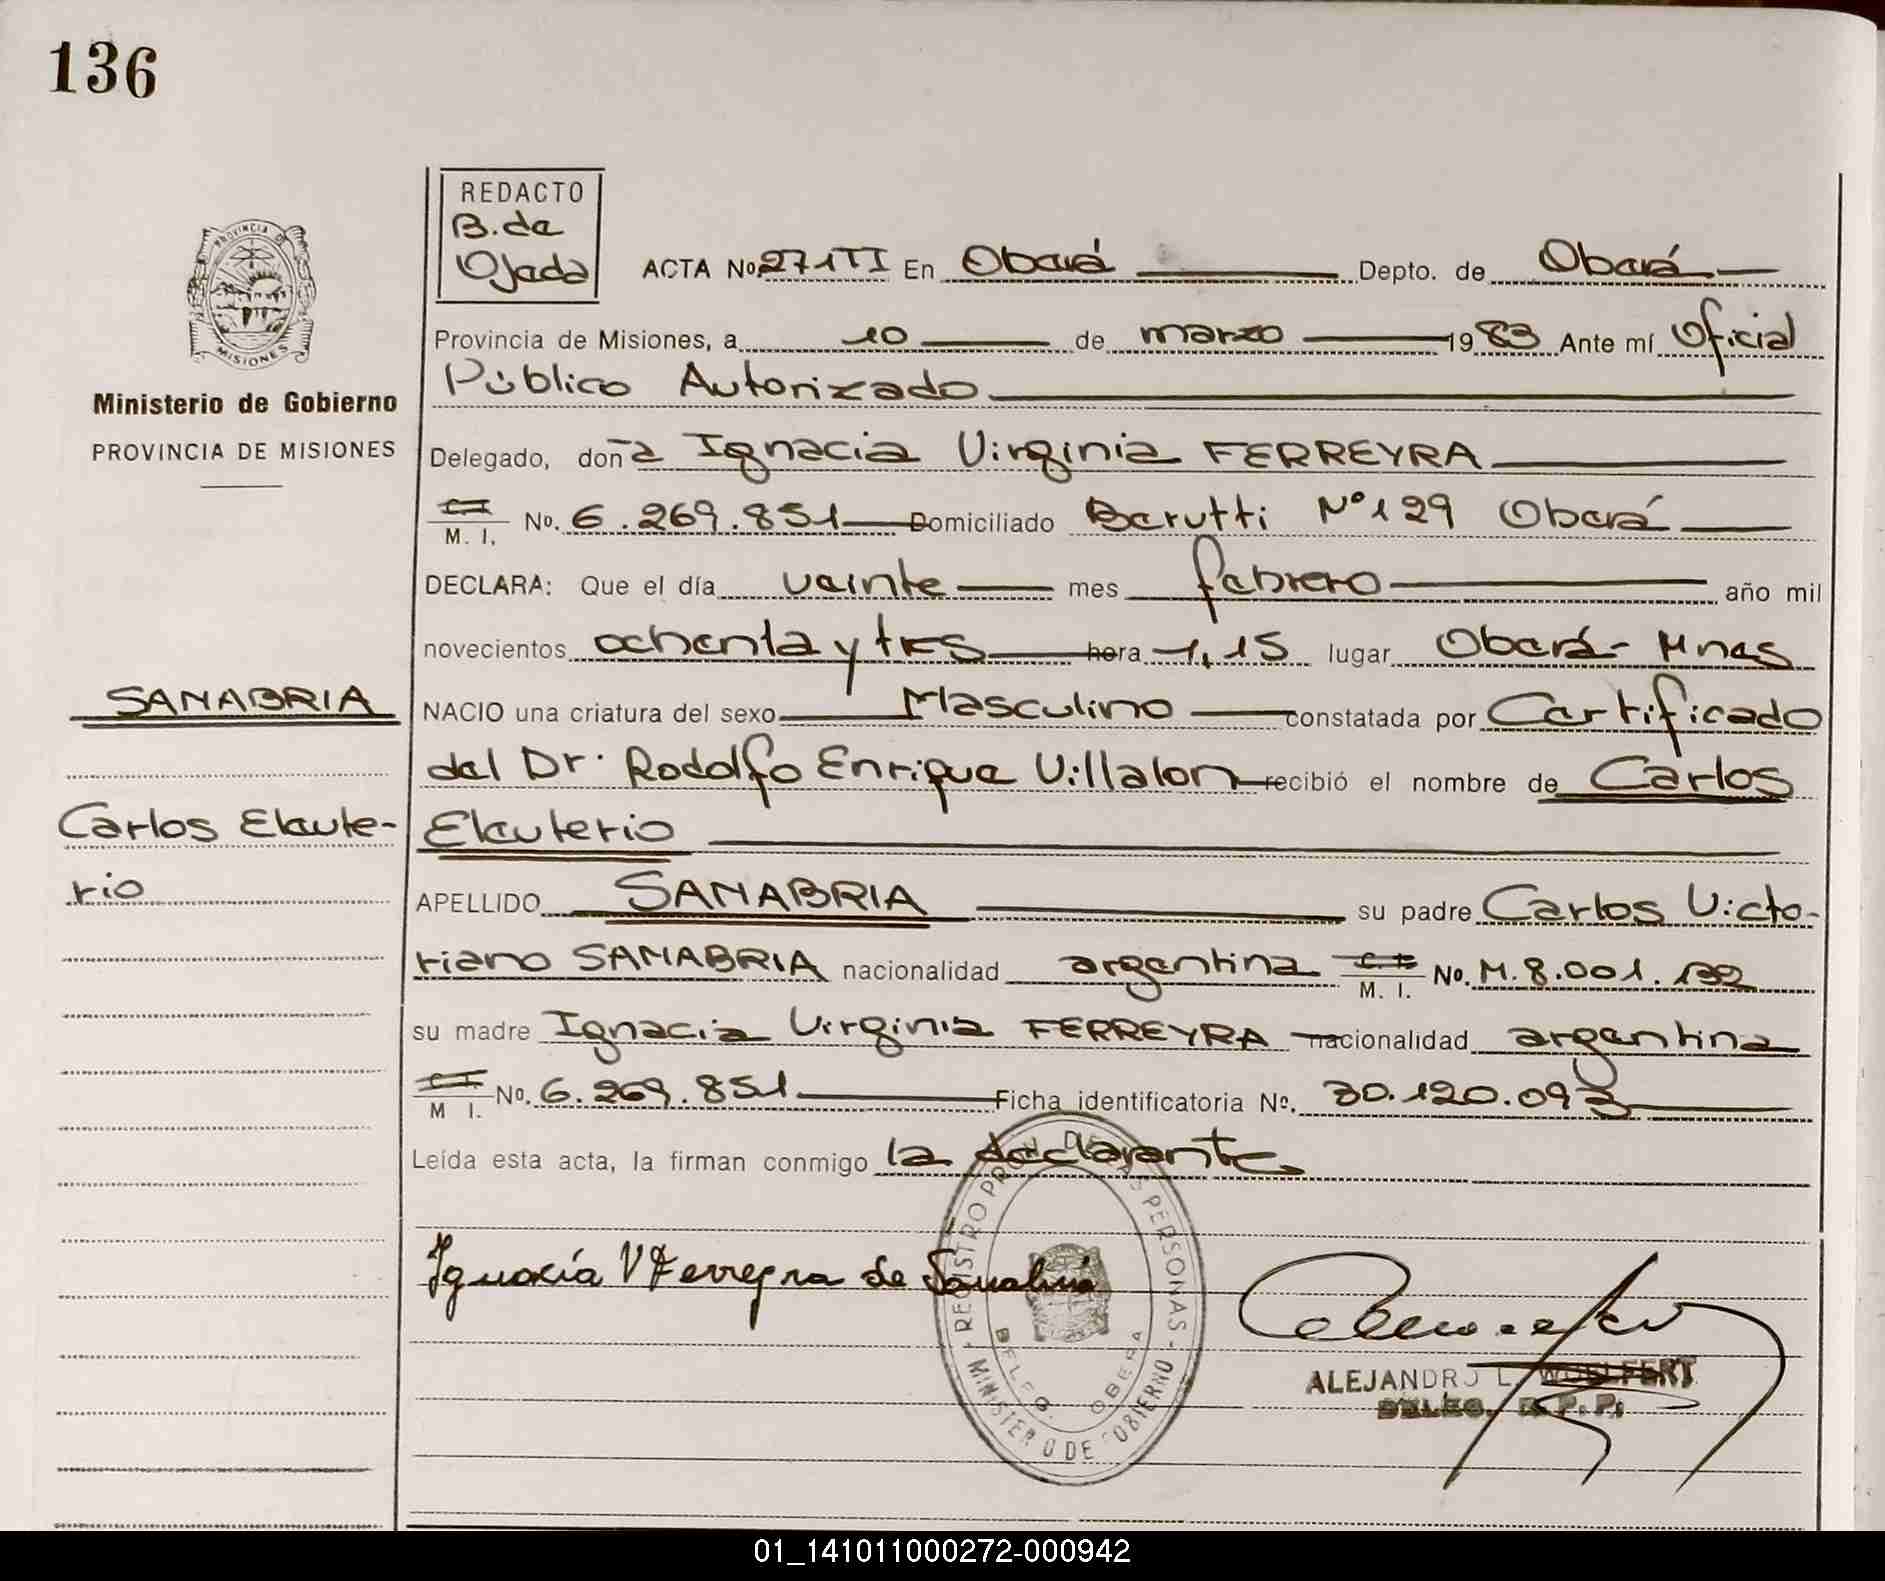 136
REDACTO
B. de
Ojeda
ACTA No. 271TI En Oberá Depto. de Oberá
Provincia de Misiones, a 10 de marzo 1983 Ante mí Oficial
Público Autorizado
Delegado, don~a Ignacia Virginia FERREYRA
C.I.
M. I. No. 6.269.851 Domiciliado Berutti Nº 129 Oberá
DECLARA: Que el día veinte mes febrero año mil
novecientos ochenta y tres hora 1,15 lugar Oberá- Mnes
NACIO una criatura del sexo Masculino constatada por Certificado
del Dr. Rodolfo Enrique Villalon recibió el nombre de Carlos
Eleuterio
APELLIDO SANABRIA su padre Carlos Victo-
riano SANABRIA nacionalidad argentina C.I. M. I. No. M. 8.001.132
su madre Ignacia Virginia FERREYRA nacionalidad argentina
C.I.
M I. No. 6.269.851 Ficha identificatoria No. 30.120.093
Leída esta acta, la firman conmigo la declarante
Ignacia V Ferreyra de Sanabria
ALEJANDRO L. WOELFERT
DELEG. R. P. P.
REGISTRO PROV. DE LAS PERSONAS
MINISTERIO DE GOBIERNO
DELEG. OBERA
PROVINCIA DE
MISIONES
Ministerio de Gobierno
PROVINCIA DE MISIONES
SANABRIA
Carlos Eleute-
rio
01_141011000272-000942